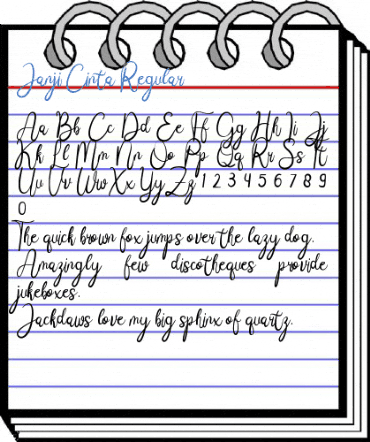 Janji Cinta Regular
Aa Bb Cc Dd Ee Ff Gg Hh Ii Jj
Kk Ll Mm Nn Oo Pp Qq Rr Ss Tt
Uu Vv Ww Xx Yy Zz 1 2 3 4 5 6 7 8 9
0
The quick brown fox jumps over the lazy dog.
Amazingly few discotheques provide
jukeboxes.
Jackdaws love my big sphinx of quartz.